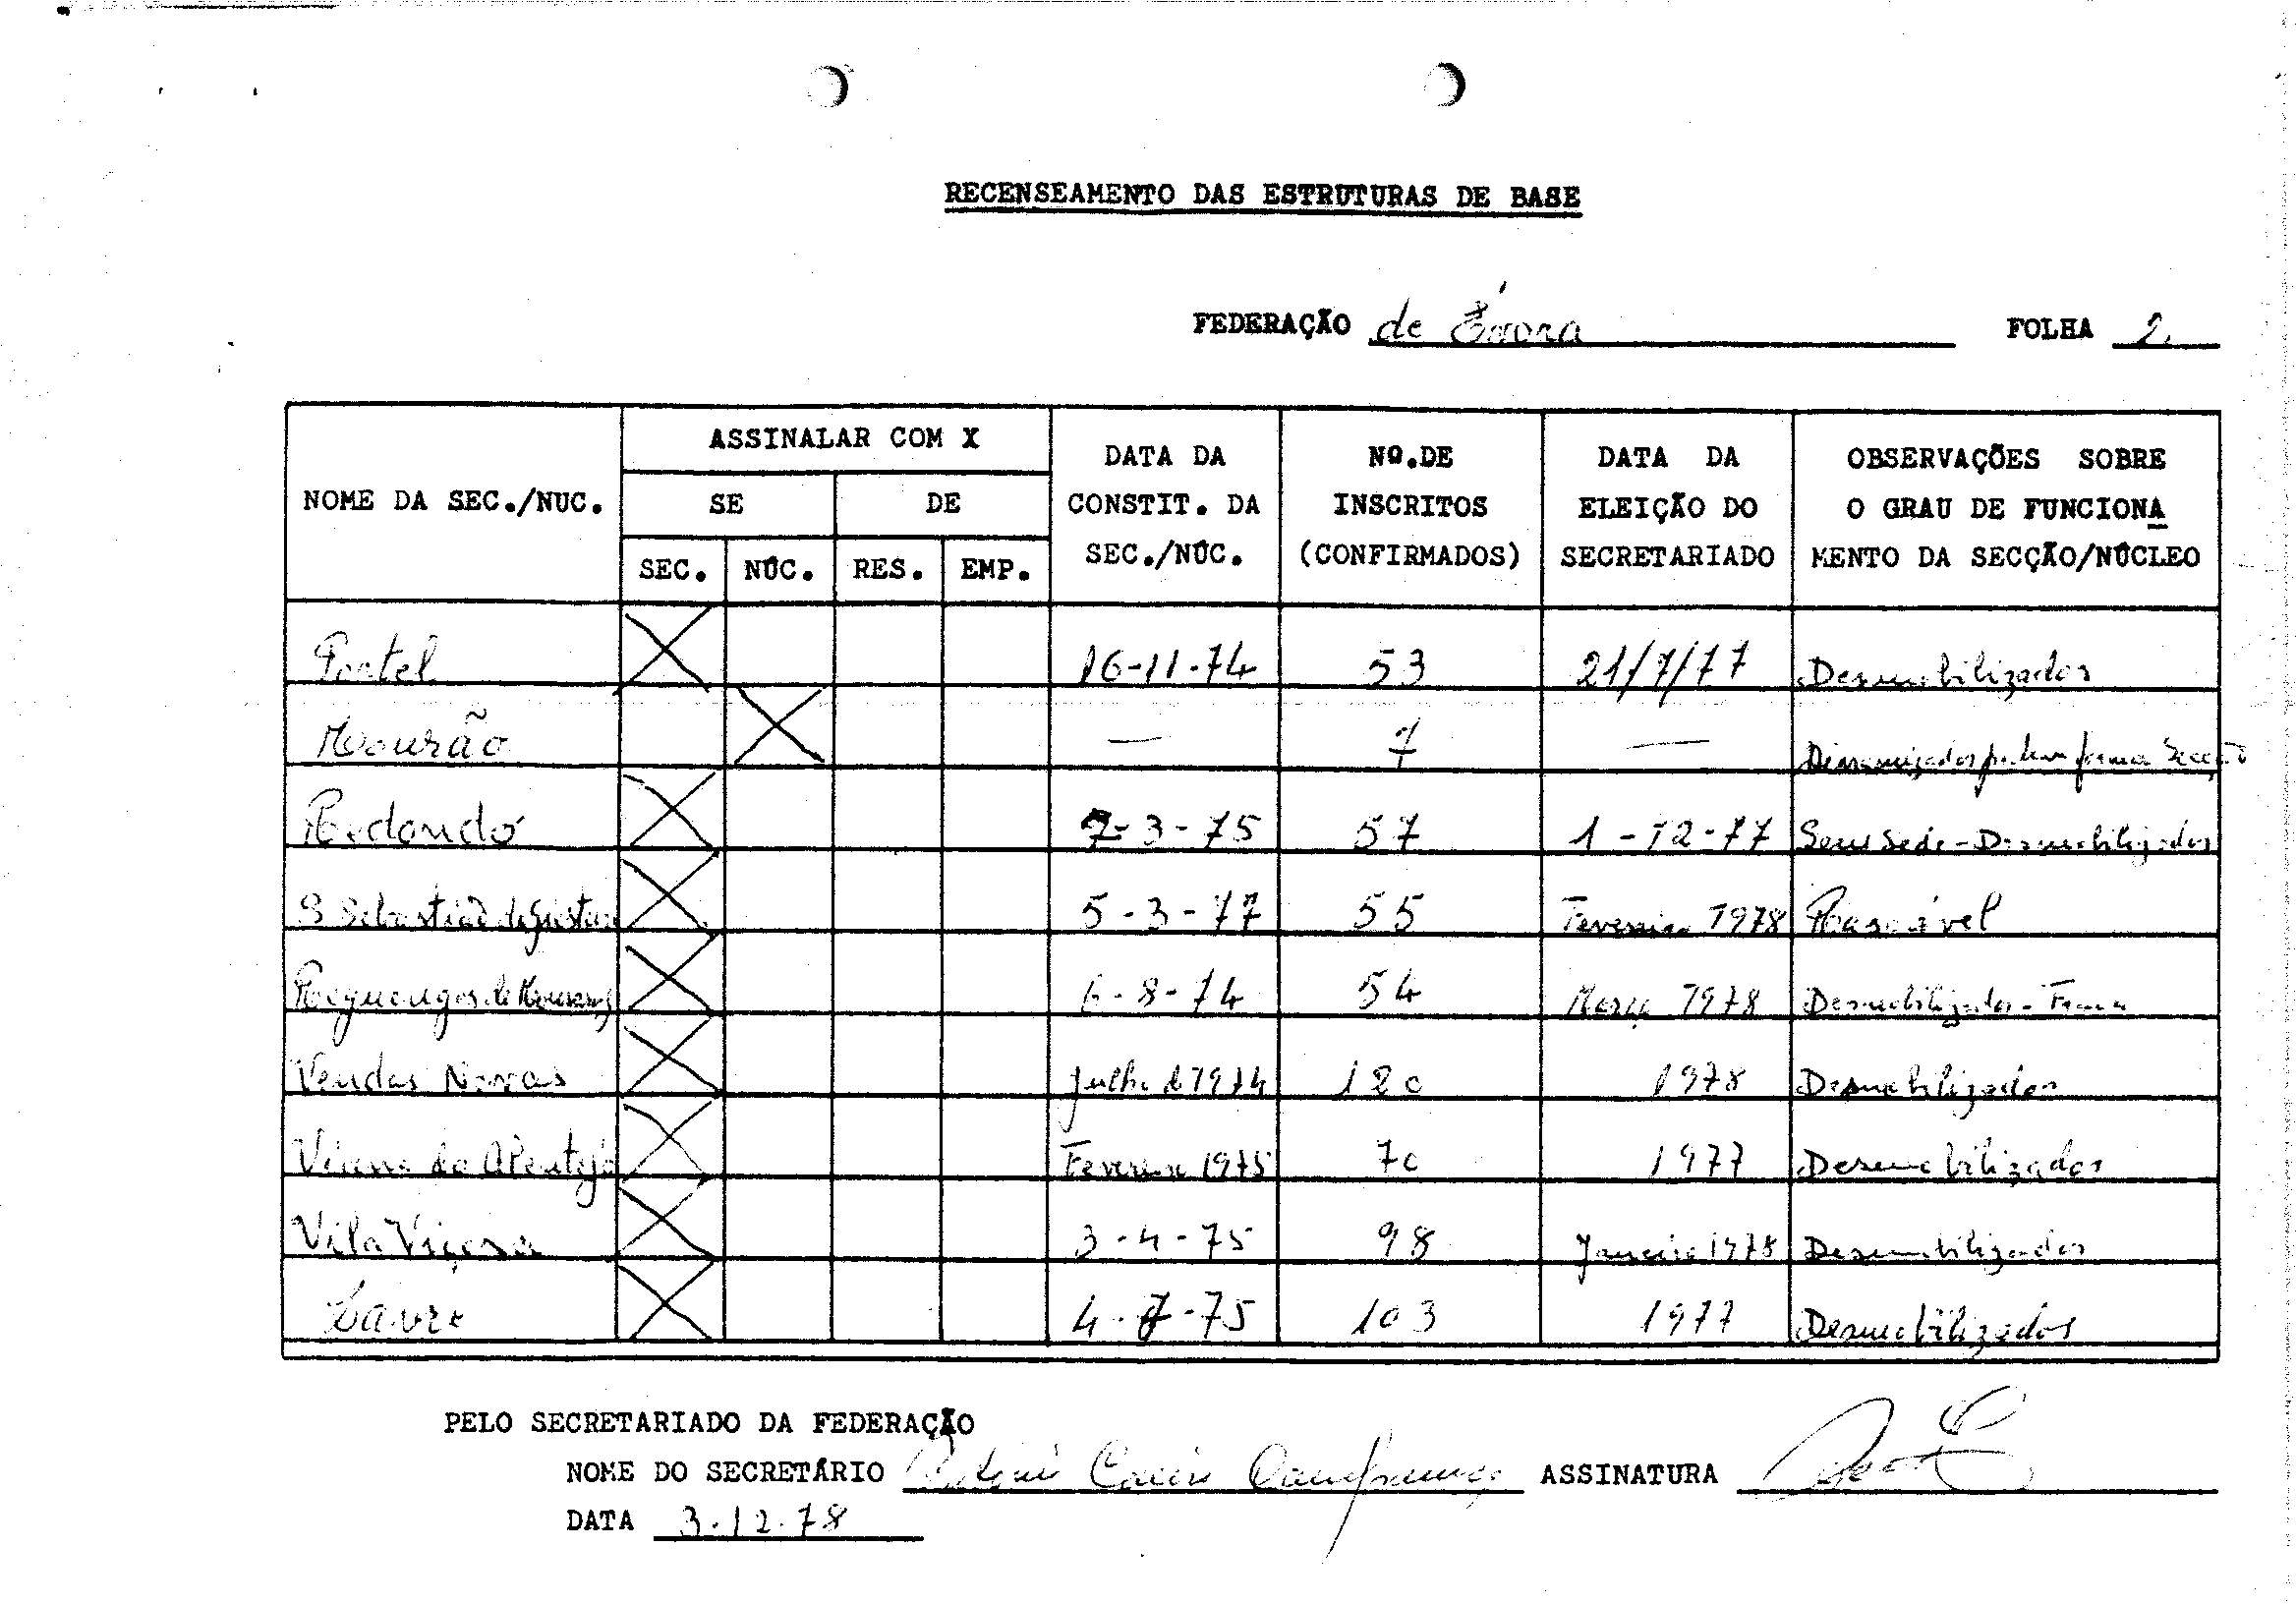 RECENSEAMENTO DAS ESTRUTURAS DE BASE
FEDERAÇÃO de Évora FOLHA 2
NOME DA SEC./NUC. ASSINALAR COM X DATA DA CONSTIT. DA SEC./NÚC. Nº.DE INSCRITOS (CONFIRMADOS) DATA DA ELEIÇÃO DO SECRETARIADO OBSERVAÇÕES SOBRE O GRAU DE FUNCIONA MENTO DA SECÇÃO/NÚCLEO
SE DE
SEC. NÚC. RES. EMP.
Portel X 16-11-74 53 21/7/77 Desmobilizados
Mourão X — 7 — Dinamizados podem formar Secção
Redondo X 7-3-75 57 1-12-77 Sem Sede - Desmobilizados
S Sebastião da Giesteira X 5-3-77 55 Fevereiro 1978 Razoável
Reguengos de Monsaraz X 6-8-74 54 Março 1978 Desmobilizados -
Vendas Novas X Julho de 1974 120 1978 Desmobilizados
Viana do Alentejo X Fevereiro 1975 70 1977 Desmobilizados
Vila Viçosa X 3-4-75 98 Janeiro 1978 Desmobilizados
Lavre X 4-7-75 103 1977 Desmobilizados
PELO SECRETARIADO DA FEDERAÇÃO
NOME DO SECRETÁRIO ASSINATURA
DATA 3.12.78